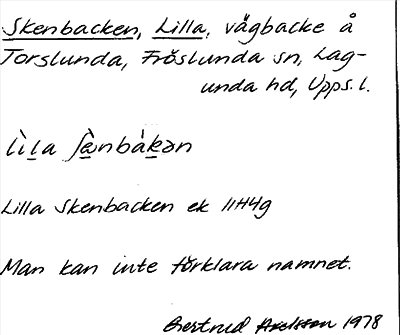 Skenbacken, Lilla, vägbacke å
Torslunda, Fröslunda sn, Lag-
unda hd, Upps. l.
lìl̲a ʃæ̲̀nbàk̲ən
Lilla Skenbacken ek 11H4g
Man kan inte förklara namnet.
Gertrud Axelsson 1978